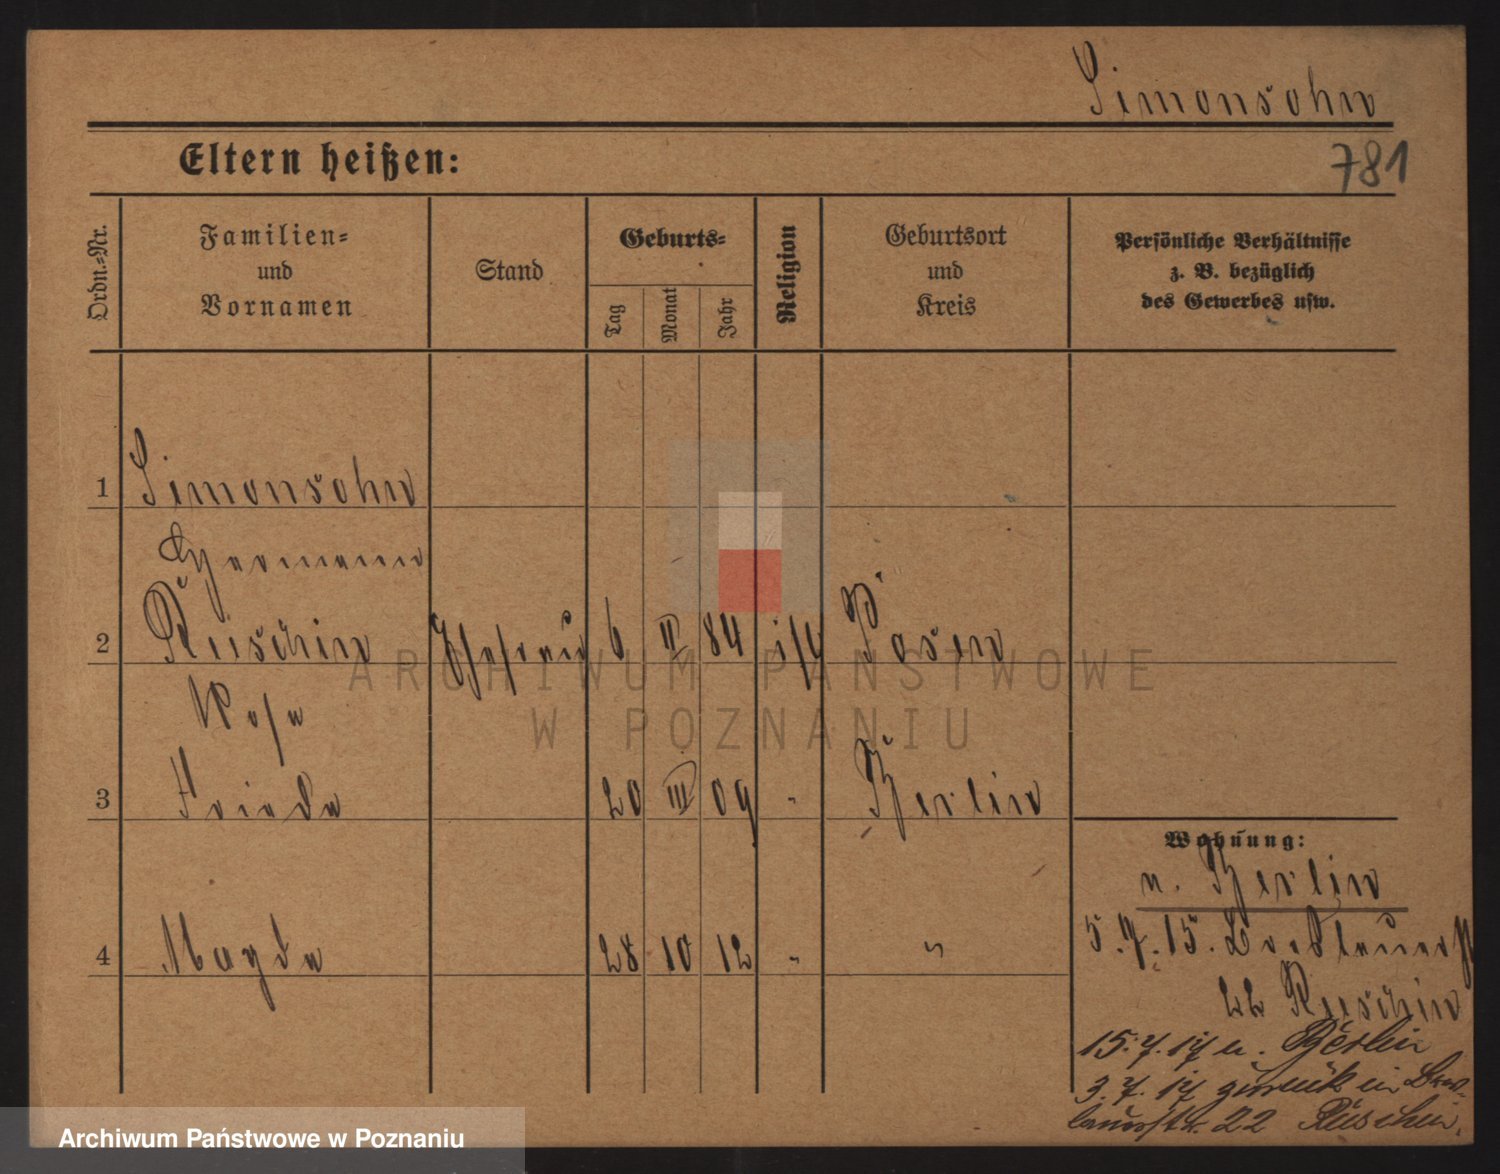 Simonsohn
Eltern heißen:
781
Ordn.=Nr.
Familien=
und
Vornamen
Stand
Geburts=
Tag
Monat
Jahr
Religion
Geburtsort
und
Kreis
Persönliche Verhältnisse
z. B. bezüglich
des Gewerbes usw.
1
Simonsohn
Hermann
2
Ruschin
Rosa
Ehefrau
6
II
84
Posen
3
Frieda
20
III
09
"
Berlin
4
Magda
28
10
12
"
"
Wohnung:
n. Berlin
5.7.15.
22 Ruschin
15.7.17 n. Berlin
3.7.17 zurück in
22 Ruschin.
ARCHIWUM PAŃSTWOWE
W POZNANIU
Archiwum Państwowe w Poznaniu